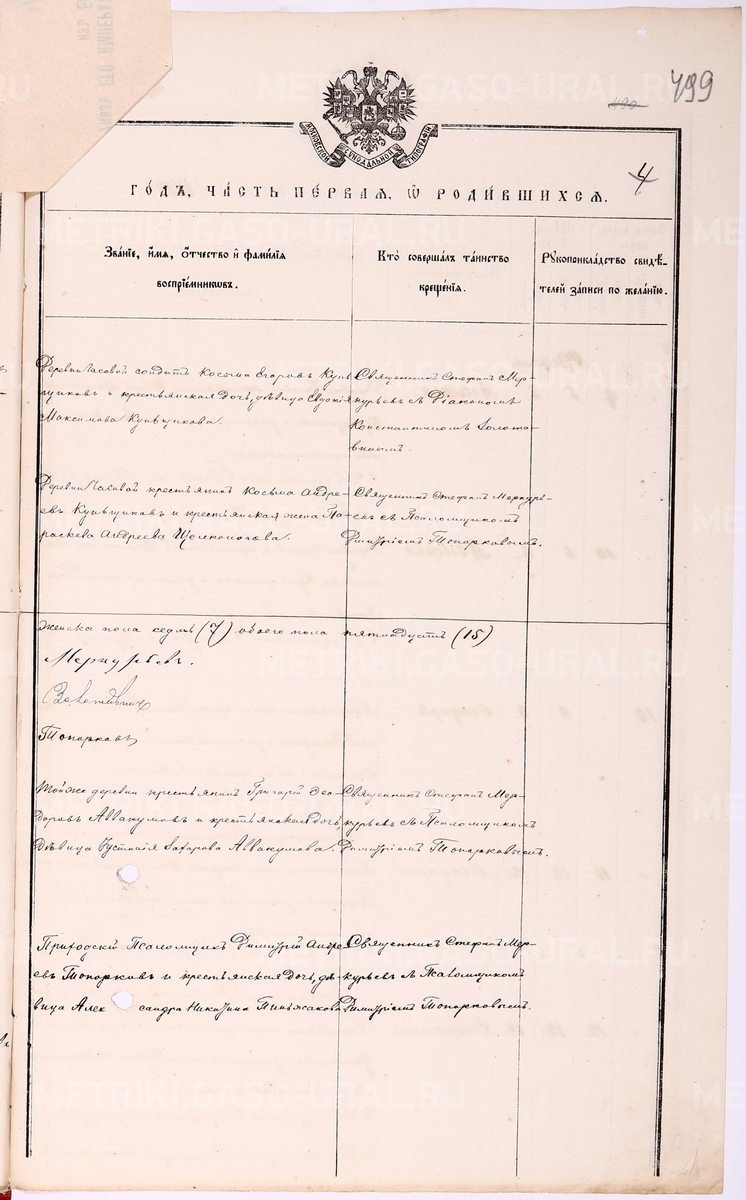 499
490
МОСКОВСКОЙ СѴНОДАЛЬНОЙ ТИПОГРАФІИ
4
ГОДЪ, ЧАСТЬ ПЕРВАЯ, Ѡ РОДИВШИХСЯ.
Званіе, имя, отчество и фамилія
воспріемниковъ.
Кто совершалъ таинство
крещенія.
Рукоприкладство свидѣ-
телей записи по желанію.
Деревни Часовой солдатъ Косьма Егоровъ
и крестьянская дочь, дѣвица Евдокія
Максимова Кунщикова.
Священникъ Стефанъ Мер-
курьевъ съ Діакономъ
Константиномъ Золота-
винымъ.
Деревни Часовой крестьянинъ Косьма Андре-
евъ Кунщиковъ и крестьянская жена Па-
раскева Андреева Щелконогова.
Священникъ Стефанъ Меркурь-
евъ съ Псаломщикомъ
Димитріемъ Топорковымъ.
Женска пола седмь (7) обоего пола пятнадцать (15)
Меркурьевъ.
Золотавинъ
Топорковъ
Той же деревни крестьянинъ Григорій Ѳео-
доровъ Аввакумовъ и крестьянская дочь,
дѣвица Устинія Захарова Аввакумова.
Священникъ Стефанъ Мер-
курьевъ съ Псаломщикомъ
Димитріемъ Топорковымъ.
Приходскій Псаломщикъ Димитрій Андре-
евъ Топорковъ и крестьянская дочь, дѣ-
вица Александра Никитина Пиньжакова
Священникъ Стефанъ Мер-
курьевъ съ Псаломщикомъ
Димитріемъ Топорковымъ.
METRIKI.GASO-URAL.RU